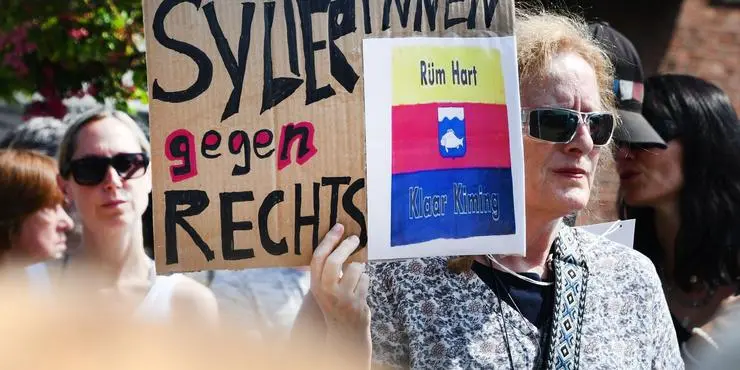 SYLTERINNEN
gegen
RECHTS
Rüm Hart
Klaar Kiming